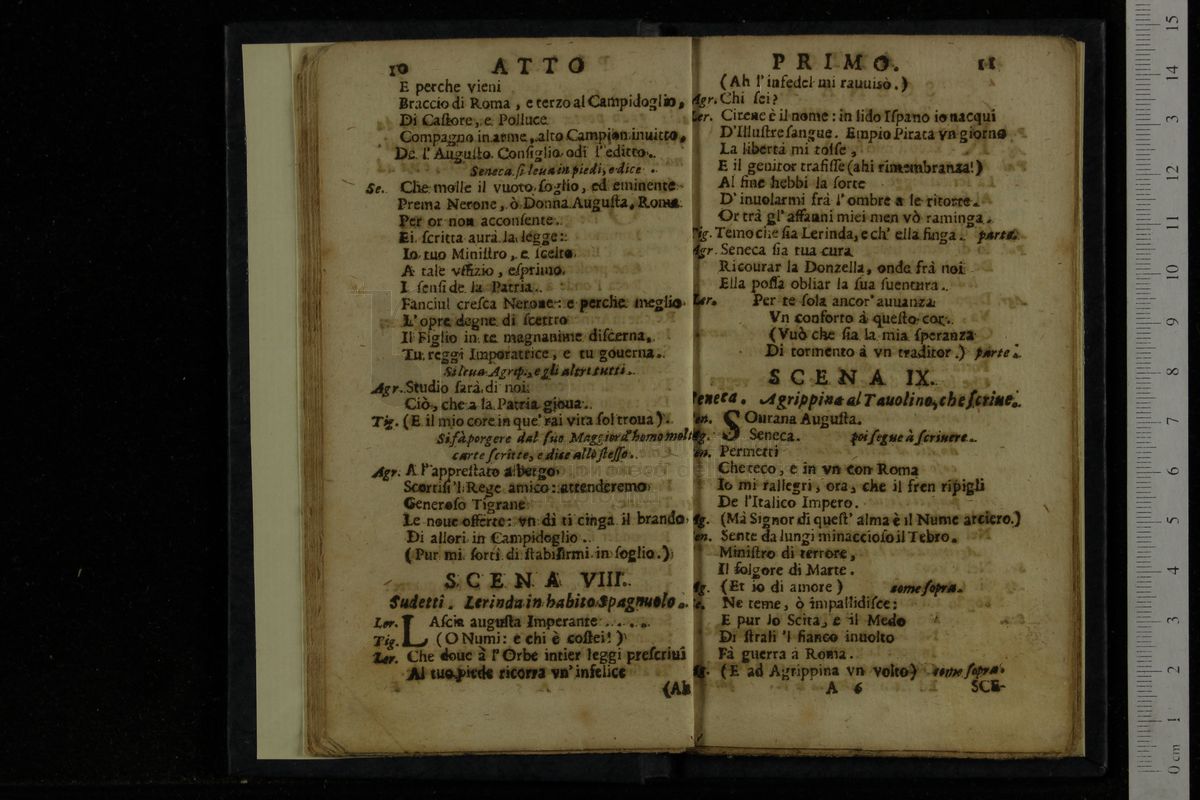 10 ATTO
E perche vieni
Braccio di Roma, e terzo al Campidoglio,
Di Caſtore, e Polluce
Compagno in arme, alto Campion inuitto,
De l'Auguſto Conſiglio odi l'editto.
Seneca ſi leua in piedi, e dice.
Se. Che molle il vuoto ſoglio, ed eminente
Prema Nerone, ò Donna Auguſta, Roma
Per or non acconſente.
Ei ſcritta aurà la legge:
Io tuo Miniſtro, e ſcelto
A tale vffizio, eſprimo
I ſenſi de la Patria.
Fanciul creſca Nerone: e perche meglio
L'opre degne di ſcettro
Il Figlio in te magnanime diſcerna,
Tu reggi Imperatrice, e tu gouerna.
Si leua Agrip., e gli altri tutti.
Agr. Studio ſarà di noi
Ciò, che a la Patria gioua.
Tig. (E il mio core in que' rai vita ſol troua).
Si fà porgere dal ſuo Maggiord'homo molte
carte ſcritte, e dice allo ſteſſo.
Agr. A l'appreſtato albergo
Scortiſi 'l Rege amico: attenderemo
Generoſo Tigrane
Le noue offerte: vn dì ti cinga il brando
Di allori in Campidoglio.
(Pur mi ſortì di ſtabilirmi in ſoglio.)
SCENA VIII.
Sudetti. Lerinda in habito Spagnuolo.
Ler. LAſcia auguſta Imperante.....
Tig. (O Numi: e chi è coſtei!)
Ler. Che doue à l'Orbe intier leggi preſcriui
Al tuo piede ricorra vn' infelice
(Ah
PRIMO. 11
(Ah l'infedel mi rauuisò.)
Agr. Chi ſei?
Ler. Cirene è il nome: in lido Iſpano io nacqui
D'Illuſtre ſangue. Empio Pirata vn giorno
La libertà mi tolſe,
E il genitor trafiſſe (ahi rimembranza!)
Al fine hebbi la ſorte
D'inuolarmi frà l'ombre a le ritorte.
Or trà gl'affanni miei men vò raminga.
Tig. Temo che ſia Lerinda, e ch'ella finga. parte.
Agr. Seneca ſia tua cura
Ricourar la Donzella, onde frà noi
Ella poſſa obliar la ſua ſuentura.
Ler. Per te ſola ancor'auuanza
Vn conforto à queſto cor.
(Vuò che ſia la mia ſperanza
Di tormento à vn traditor.) parte.
SCENA IX.
Seneca. Agrippina al Tauolino, che ſcriue.
Sen. SOurana Auguſta.
Ag. Seneca. poi ſegue à ſcriuere.
Sen. Permetti
Che teco, e in vn con Roma
Io mi rallegri, ora, che il fren ripigli
De l'Italico Impero.
Ag. (Mà Signor di queſt'alma è il Nume arciero.)
Sen. Sente da lungi minaccioſo il Tebro,
Miniſtro di terrore,
Il folgore di Marte.
Ag. (Et io di amore) come ſopra.
Se. Ne teme, ò impallidiſce:
E pur lo Scita, e il Medo
Di ſtrali 'l fianco inuolto
Fà guerra à Roma.
Ag. (E ad Agrippina vn volto) come ſopra.
A 6 SCE-
0 cm 1 2 3 4 5 6 7 8 9 10 11 12 13 14 15